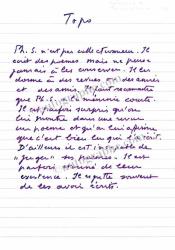 Topo
Ph. S. n'est pas collectionneur. Il
écrit des poèmes mais ne pense
jamais à les conserver. Il en
donne à des revues, à des amies
et des amis. Il faut reconnaître
que Ph. S. a la mémoire courte.
Il est parfois surpris qu'on
lui montre dans une revue
un poème et qu'on lui affirme
que c'est bien lui qui l'a écrit.
D'ailleurs il est incapable de
"juger" ses poèmes. Il est
parfois étonné de leur
existence. Il regrette souvent
de les avoir écrits.